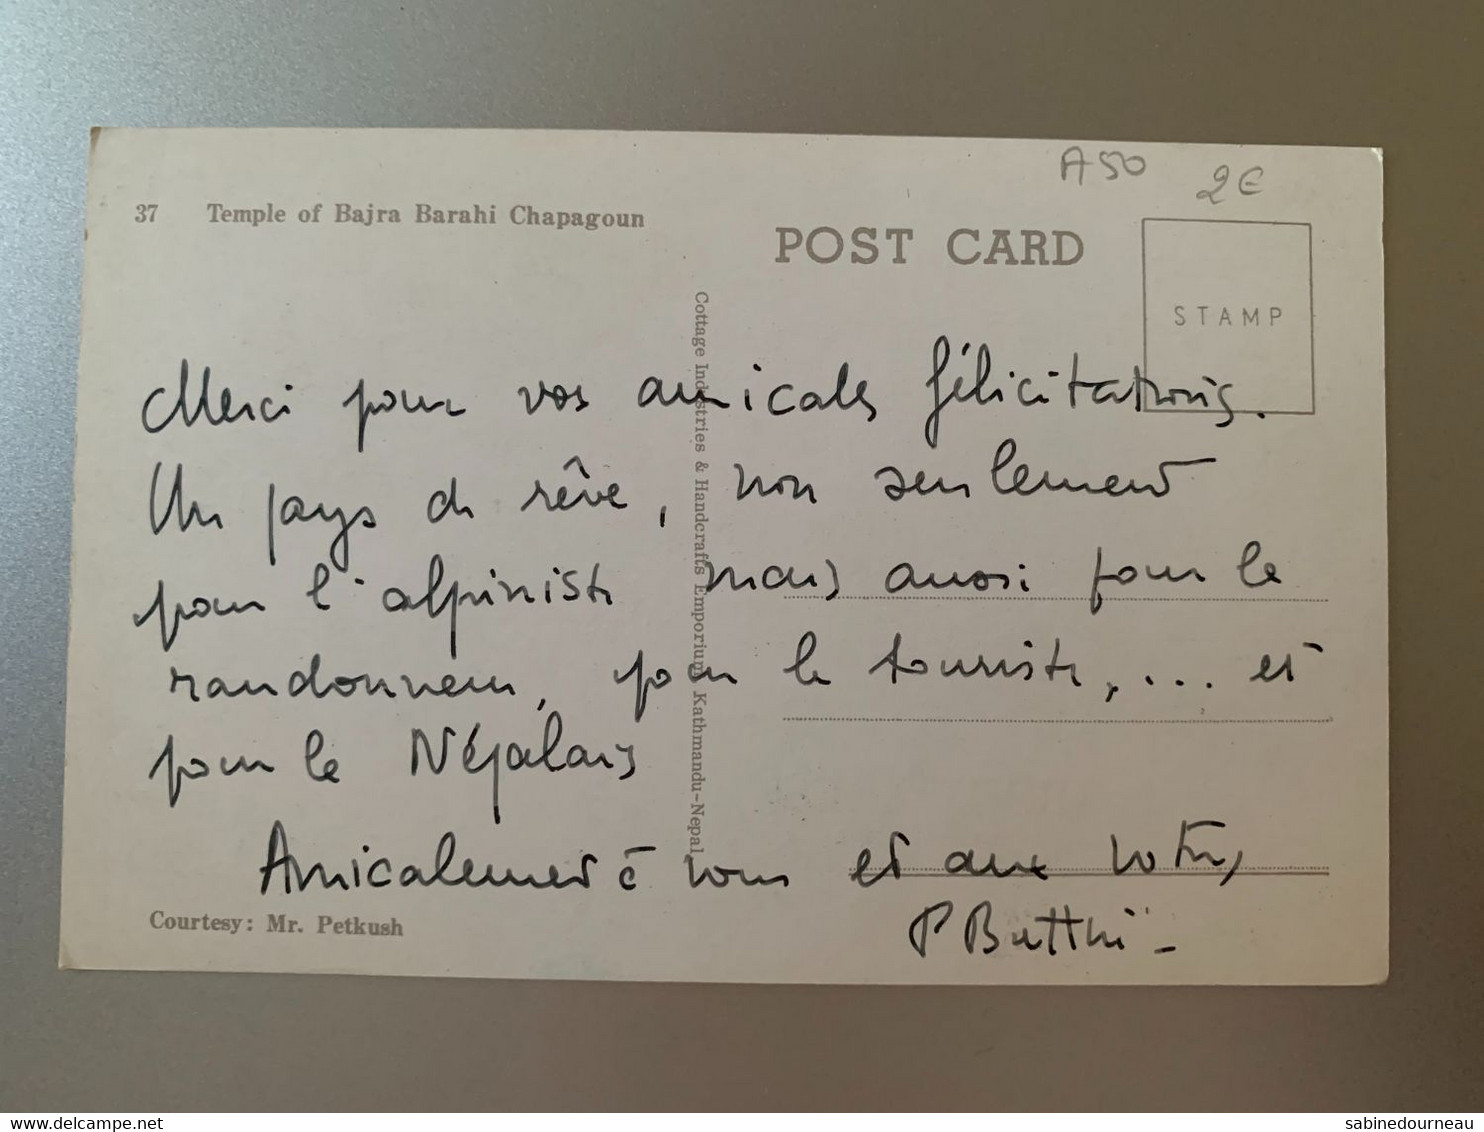 A50 2€
37 Temple of Bajra Barahi Chapagoun
POST CARD
STAMP
Cottage Industries & Handcrafts Emporium Kathmandu-Nepal
Merci pour vos amicales félicitations.
Un pays de rêve, non seulement
pour l'alpiniste mais aussi pour le
randonneur, pour le touriste, ... et
pour le Népalais
Amicalement à vous et aux vôtres,
P
Courtesy: Mr. Petkush
delcampe.net
sabinedourneau